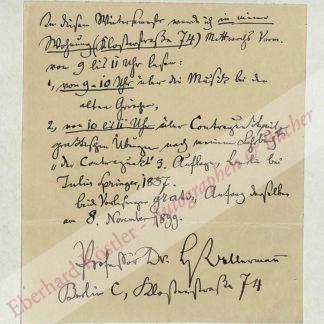 In diesem Wintersemester werde ich in meiner
Wohnung (Klosterstraße 74) Mittwochs Vorm.
von 9 bis 11 Uhr lesen:
1, von 9-10 Uhr über die Musik bei den
alten Griechen,
2, von 10 bis 11 Uhr über Contrapunkt mit
praktischen Übungen nach meinem Lehrbuch
"der Contrapunkt" 3. Auflage, Berlin bei
Julius Springer, 1887.
beide Vorlesungen gratis, Anfang derselben
am 8. November 1899.
Professor Dr. H Bellermann
Berlin C, Klosterstraße 74
Eberhard Köstler - Autographen & Bücher